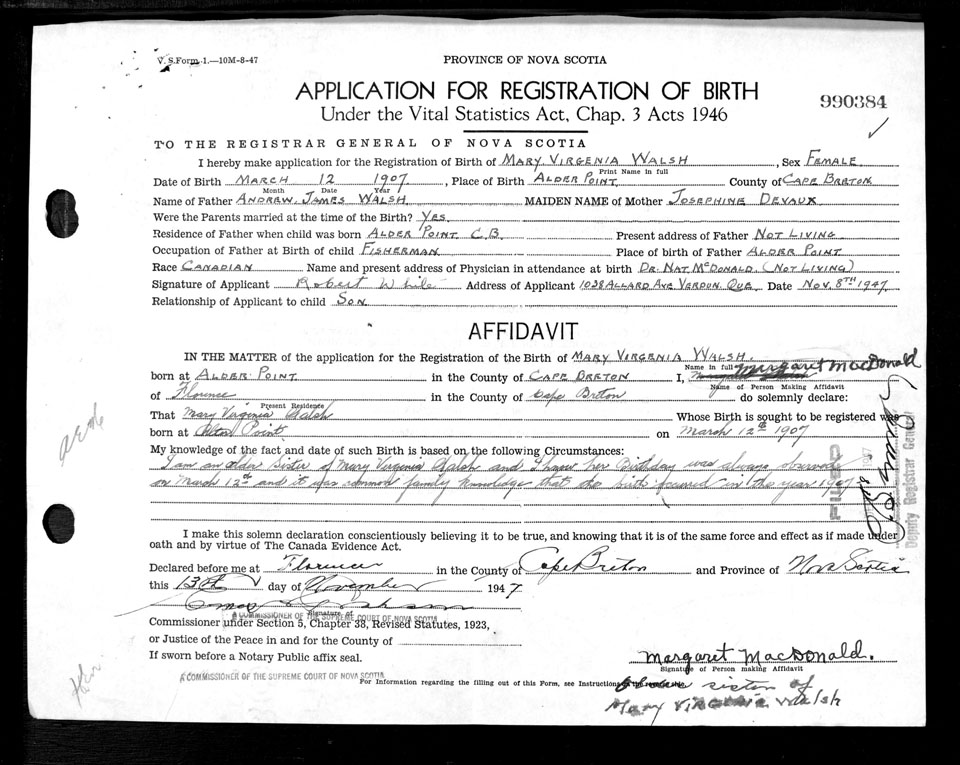 V. S. Form 1.—10M-8-47
PROVINCE OF NOVA SCOTIA
APPLICATION FOR REGISTRATION OF BIRTH
990384
Under the Vital Statistics Act, Chap. 3 Acts 1946
TO THE REGISTRAR GENERAL OF NOVA SCOTIA
I hereby make application for the Registration of Birth of MARY VIRGENIA WALSH, Sex FEMALE
Print Name in full
Date of Birth MARCH 12 1907, Place of Birth ALDER POINT County of CAPE BRETON
Month Date Year
Name of Father ANDREW JAMES WALSH MAIDEN NAME of Mother JOSEPHINE DEVAUX
Were the Parents married at the time of the Birth? YES.
Residence of Father when child was born ALDER POINT C.B. Present address of Father NOT LIVING
Occupation of Father at Birth of child FISHERMAN Place of birth of Father ALDER POINT
Race CANADIAN Name and present address of Physician in attendance at birth DR. NAT. McDONALD (NOT LIVING)
Signature of Applicant Robert White Address of Applicant 1038 ALLARD AVE VERDUN. QUE. Date NOV. 8TH 1947.
Relationship of Applicant to child SON
AFFIDAVIT
IN THE MATTER of the application for the Registration of the Birth of MARY VIRGENIA WALSH.
Name in full
born at ALDER POINT in the County of CAPE BRETON I, Margaret MacDonald
Name of Person Making Affidavit
of Florence in the County of Cape Breton do solemnly declare:
Present Residence
That Mary Virginia Walsh Whose Birth is sought to be registered was
born at Alder Point on March 12th 1907
My knowledge of the fact and date of such Birth is based on the following Circumstances:
I am an older Sister of Mary Virginia Walsh and I know her Birthday was always observed
on March 12th and it was common family knowledge that the birth occurred in the year 1907
FILED
Deputy Registrar General
I make this solemn declaration conscientiously believing it to be true, and knowing that it is of the same force and effect as if made under
oath and by virtue of The Canada Evidence Act.
Declared before me at Florence in the County of Cape Breton and Province of Nova Scotia
this 13th day of November 1947
Signature of
A COMMISSIONER OF THE SUPREME COURT OF NOVA SCOTIA
Commissioner under Section 5, Chapter 38, Revised Statutes, 1923,
or Justice of the Peace in and for the County of
If sworn before a Notary Public affix seal.
Margaret MacDonald.
Signature of Person making Affidavit
A COMMISSIONER OF THE SUPREME COURT OF NOVA SCOTIA
For Information regarding the filling out of this Form, see Instructions
sister of
Mary VIRGINIA Walsh